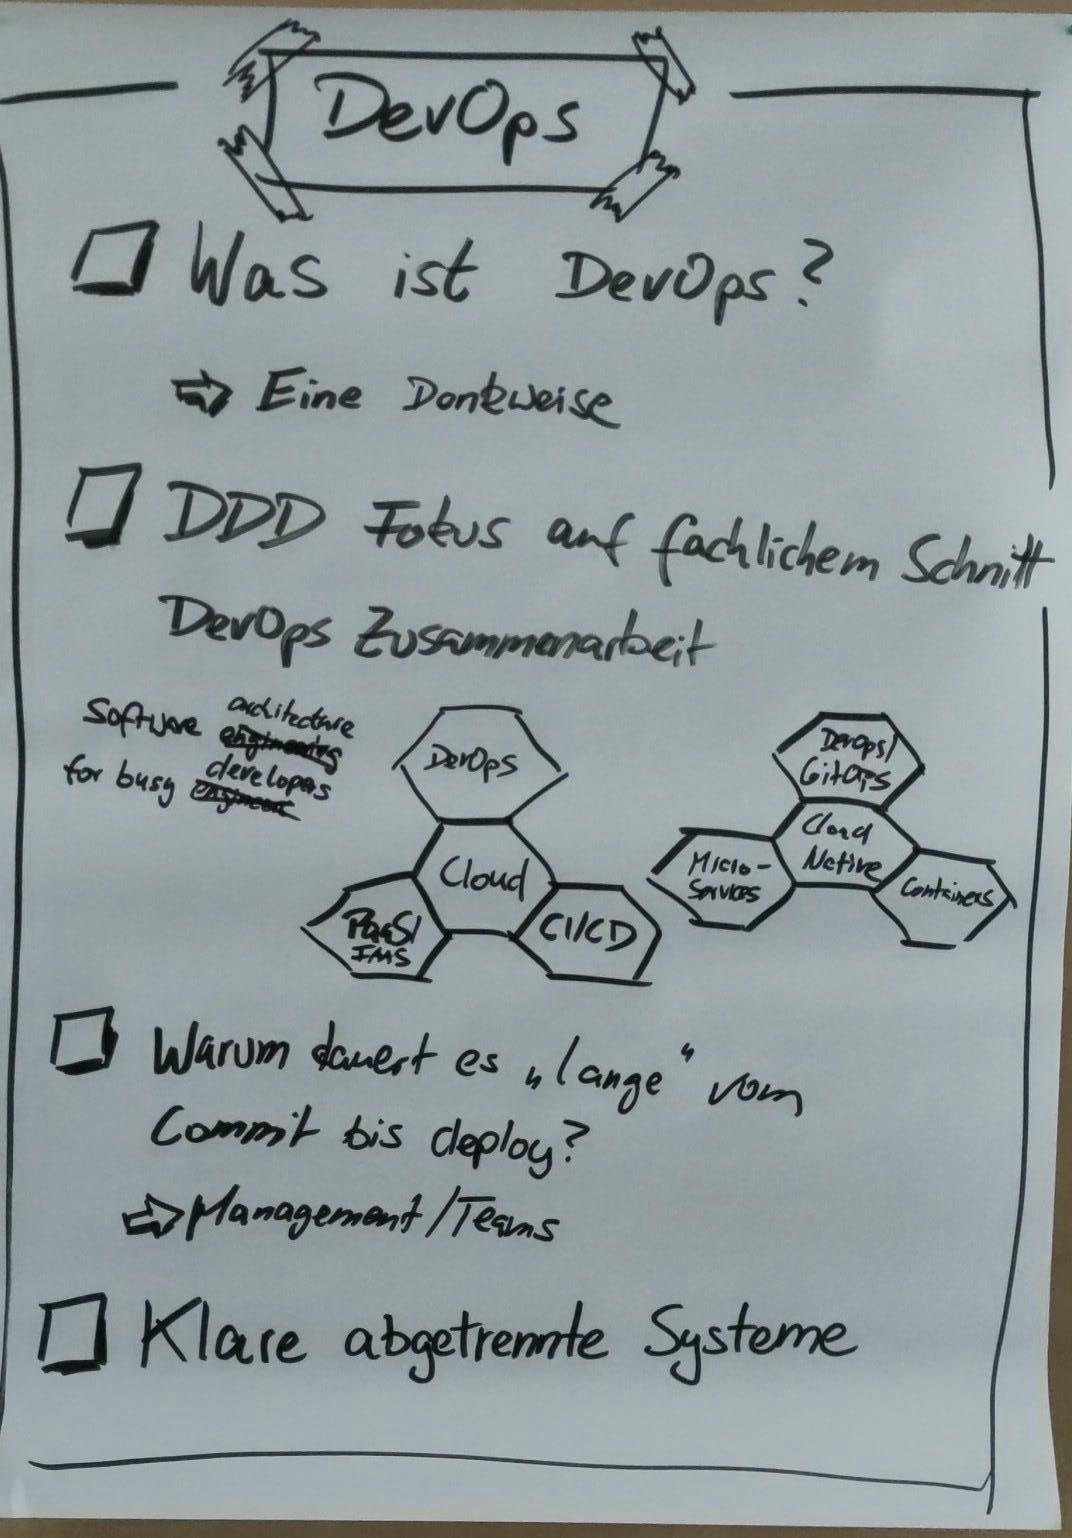 DevOps
Was ist DevOps?
⇒ Eine Denkweise
DDD Fokus auf fachlichem Schnitt
DevOps Zusammenarbeit
architecture
Software engineering
for busy developers
engineers
DevOps
Cloud
PaaS/
CI/CD
DevOps/
GitOps
Cloud
Native
Micro-
Services
Containers
Warum dauert es „lange“ vom
Commit bis deploy?
⇒ Management/Teams
Klare abgetrennte Systeme